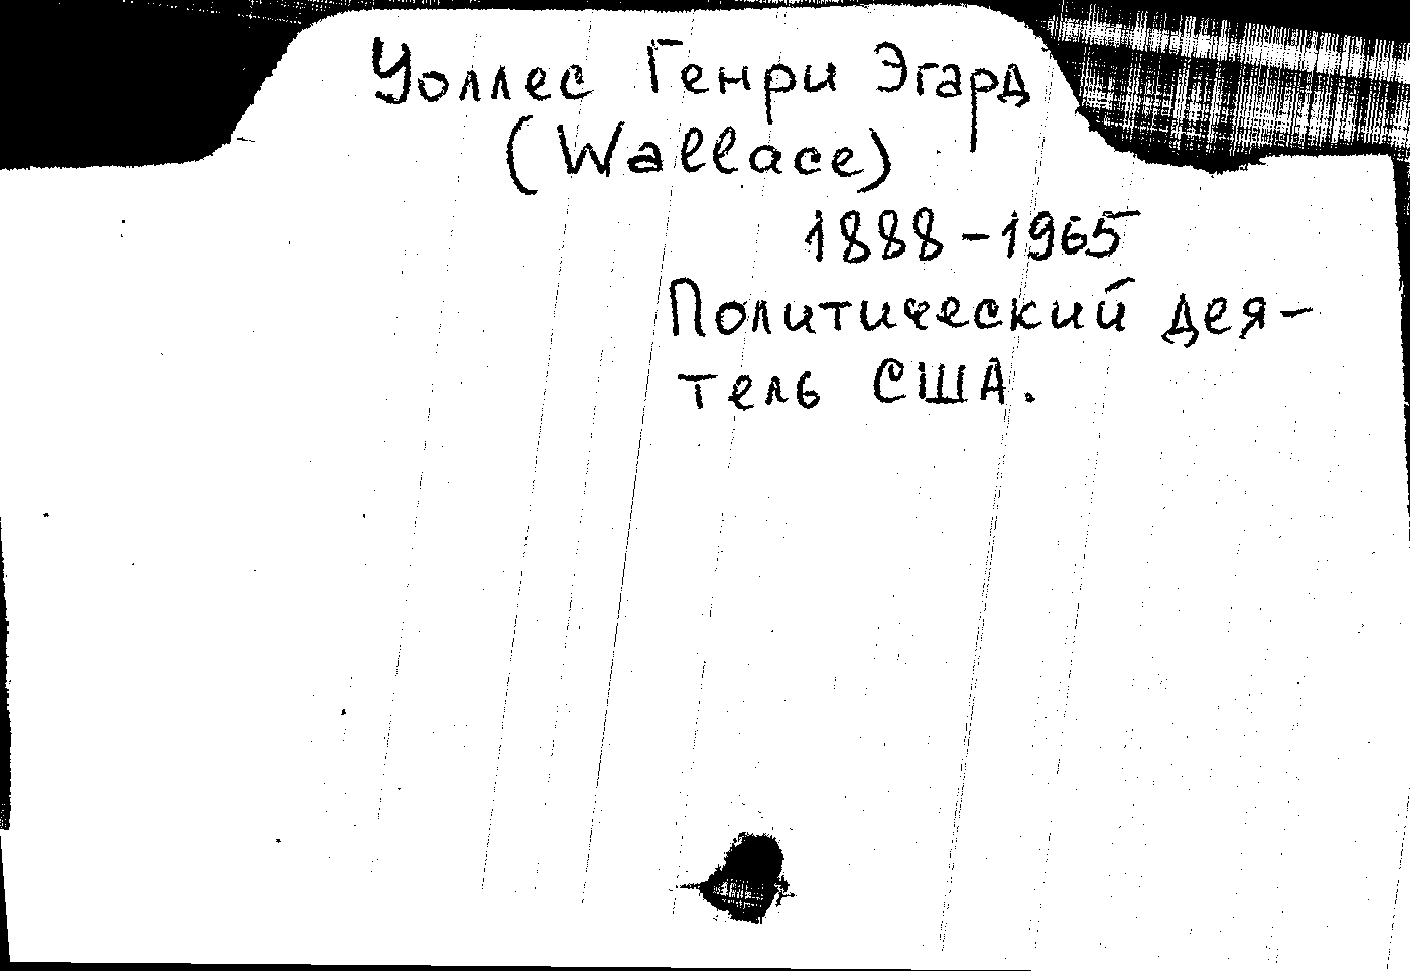 Уоллес Генри Эгард
(Wallace)
1888-1965
Политический дея-
тель США.